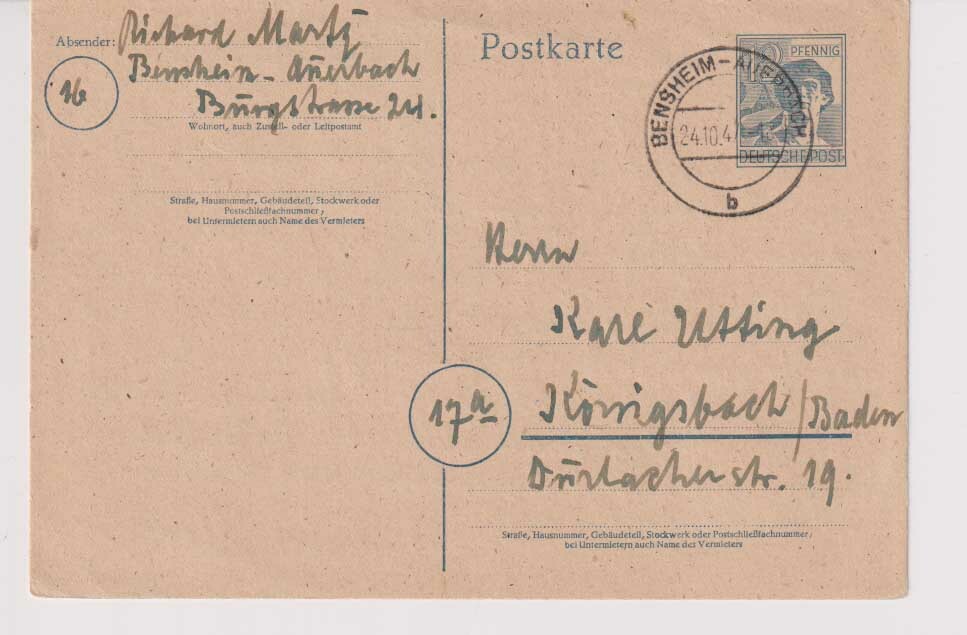 Absender: Richard Martz
16
Bensheim-Auerbach
Burgstrasse 24.
Wohnort, auch Zustell- oder Leitpostamt
Straße, Hausnummer, Gebäudeteil, Stockwerk oder
Postschließfachnummer;
bei Untermietern auch Name des Vermieters
Postkarte
PFENNIG
DEUTSCHE POST
BENSHEIM-AUERBACH
24.10.47
b
Herrn
Karl Utting
17a
Königsbach/Baden
Durlacherstr. 19.
Straße, Hausnummer, Gebäudeteil, Stockwerk oder Postschließfachnummer;
bei Untermietern auch Name des Vermieters